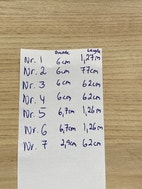 Bredde Lengde
Nr. 1 6cm 1,27m
Nr. 2 6cm 77cm
Nr. 3 6cm 62cm
Nr. 4 6cm 62cm
Nr. 5 6,7cm 1,26m
Nr. 6 6,7cm 1,26m
Nr. 7 2,9cm 62cm